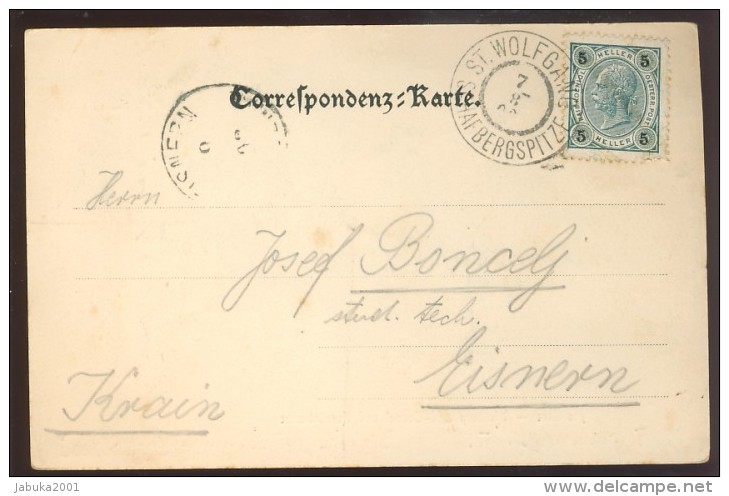 Correspondenz-Karte.
ST. WOLFGANG
SCHAFBERGSPITZE
7
8
5 HELLER 5
OESTERR. POST
5 HELLER 5
EISNERN
Herrn
Josef Boncelj
stud. tech.
Eisnern
Krain
jabuka2001
delcampe.net